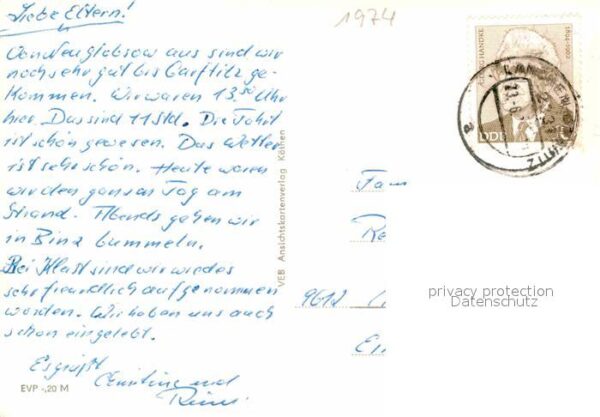 Liebe Eltern!
1974
Von Neuglobsow aus sind wir
noch sehr gut bis Garftitz ge-
kommen. Wir waren 13.50 Uhr
hier. Das sind 11 Std. Die Fahrt
ist schön gewesen. Das Wetter
ist sehr schön. Heute waren
wir den ganzen Tag am
Strand. Abends gehen wir
in Binz bummeln.
Bei Klast sind wir wieder
sehr freundlich aufgenommen
worden. Wir haben uns auch
schon eingelebt.
Es grüßt
Christine und
EVP -,20 M
VEB Ansichtskartenverlag Köthen
GEORG HANDKE
1894-1962
DDR
23.6
a
Fam
9612
privacy protection
Datenschutz